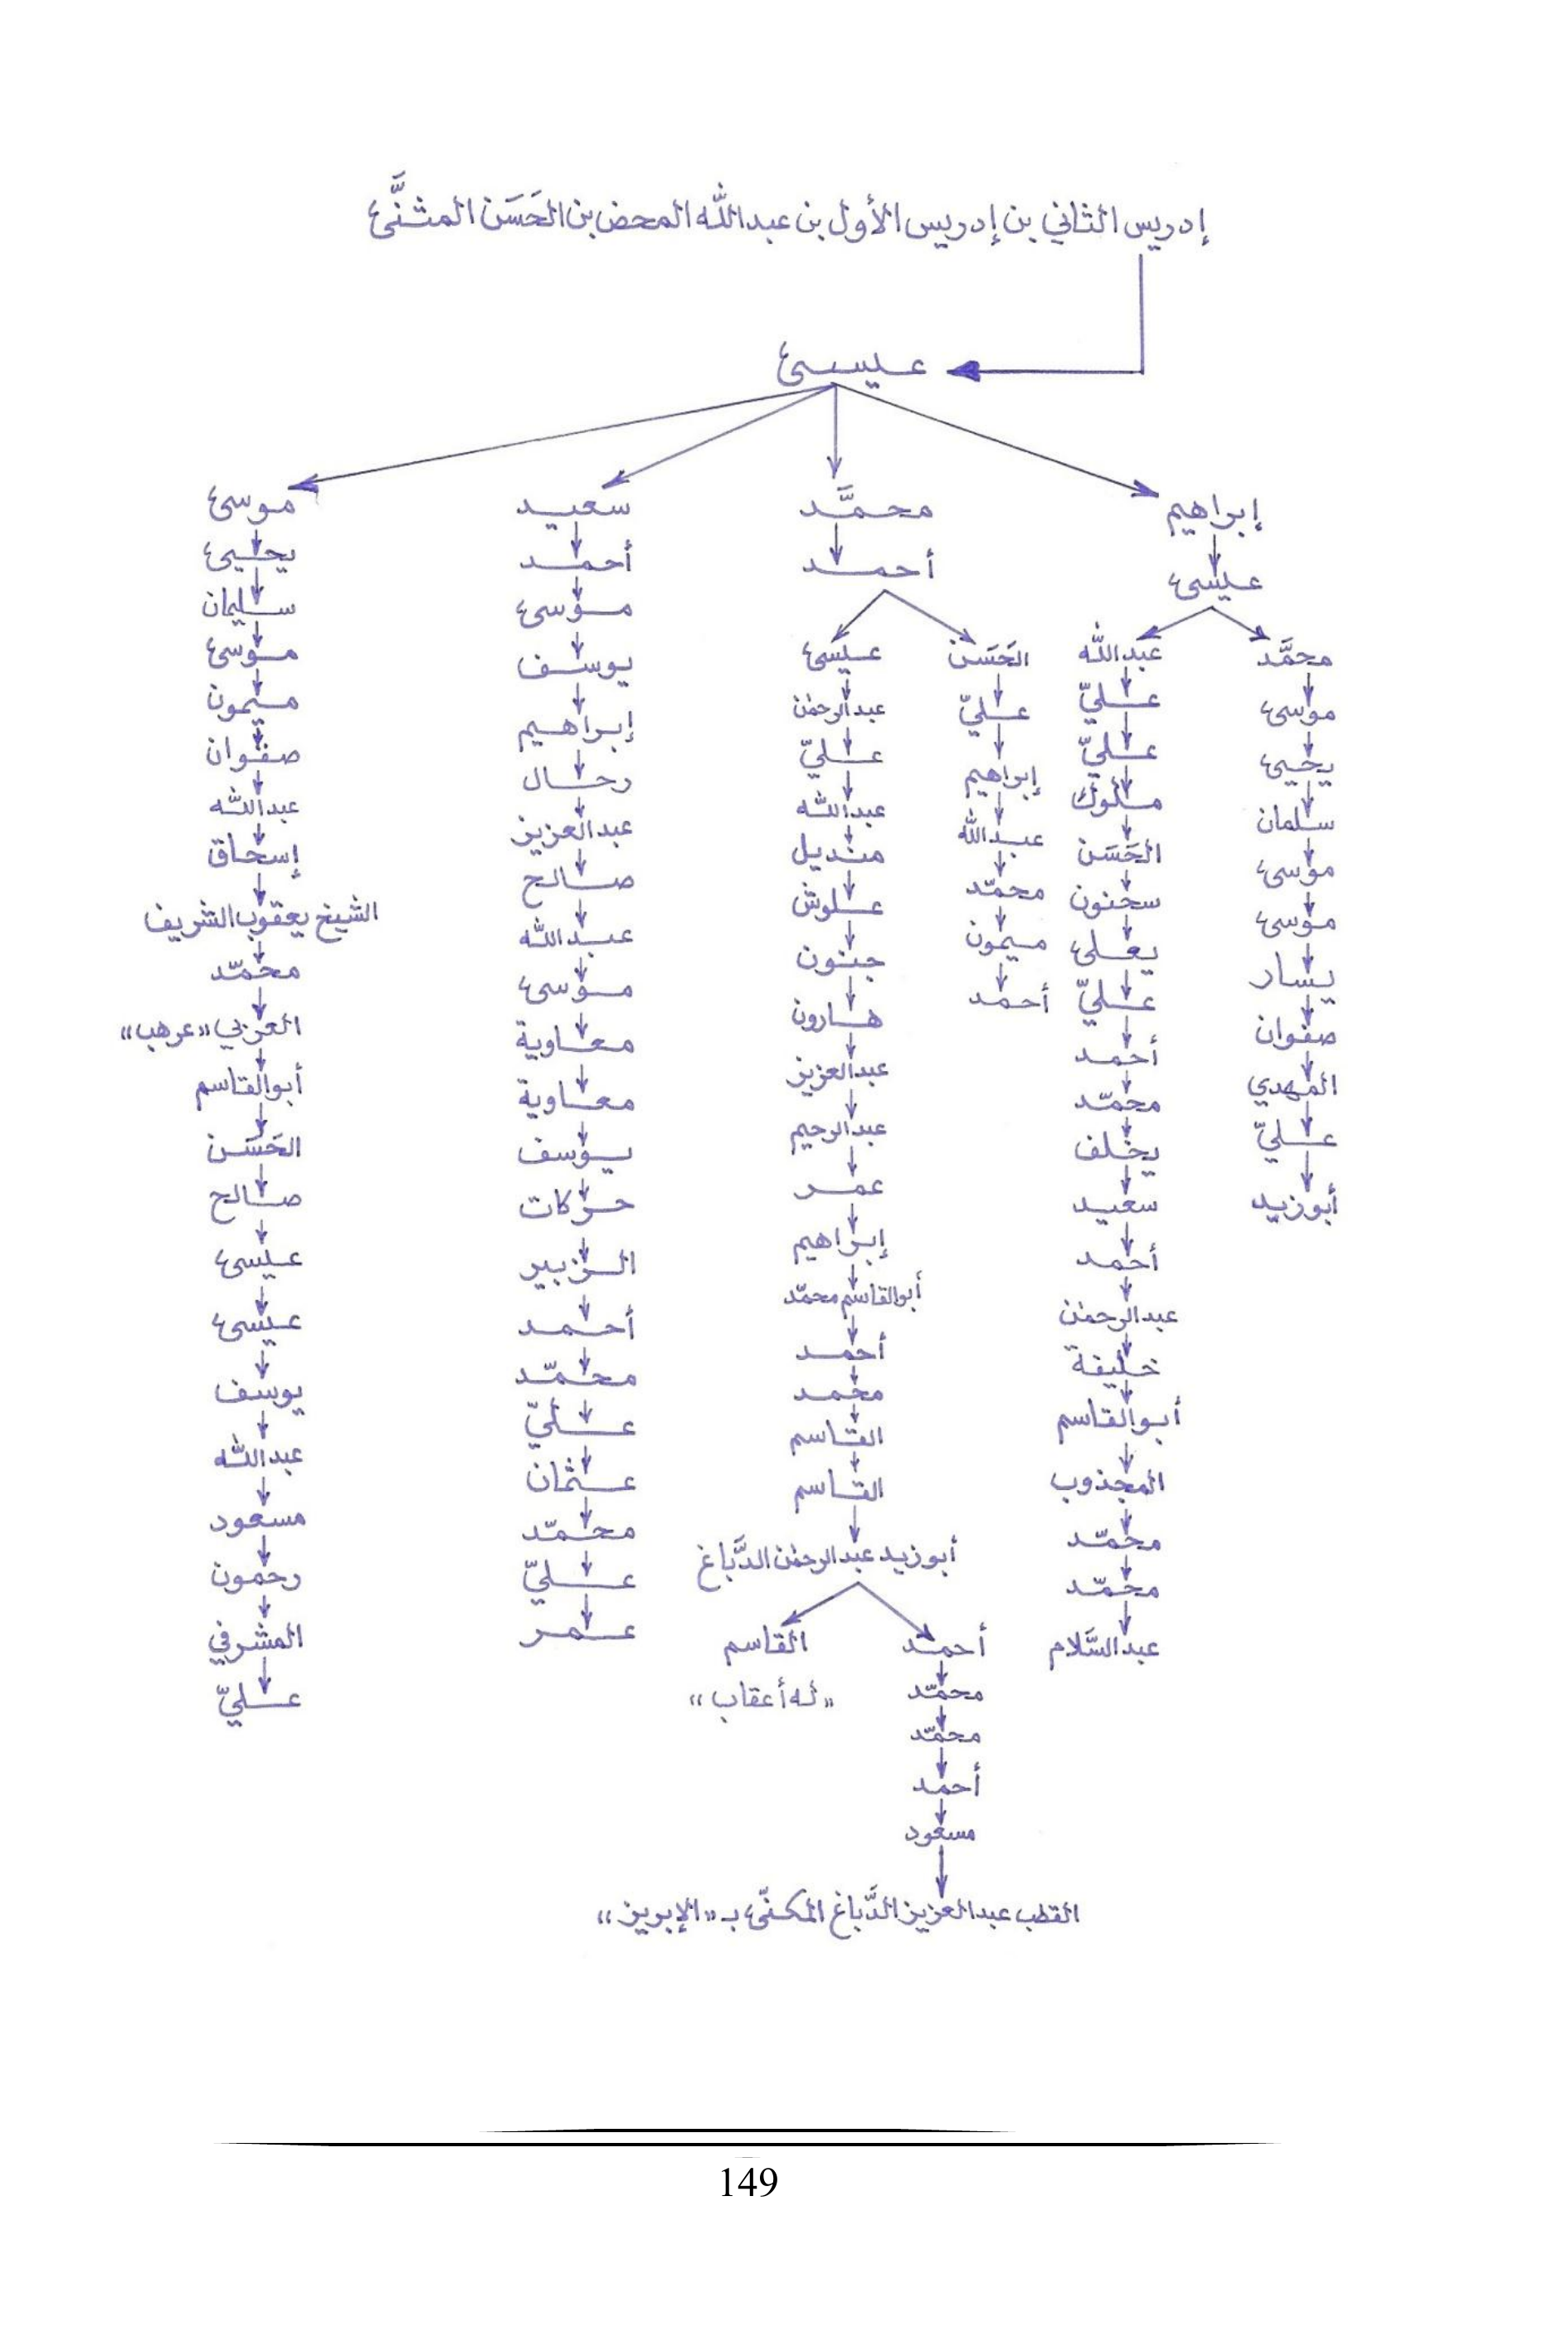 إدريس الثاني بن إدريس الأول بن عبدالله المحض بن الحَسَن المثنَّى
عيسى
إبراهيم
عيسى
محمَّد
موسى
يحيى
سلمان
موسى
موسى
يسار
صفوان
المهدي
عليّ
أبوزيد
عبدالله
عليّ
عليّ
ملوك
الحَسَن
سحنون
يعلى
عليّ
أحمد
محمّد
يخلف
سعيد
أحمد
عبدالرحمٰن
خليفة
أبوالقاسم
المجذوب
محمّد
محمّد
عبدالسَّلام
محمَّد
أحمد
الحَسَن
عليّ
إبراهيم
عبدالله
محمّد
ميمون
أحمد
عيسى
عبدالرحمٰن
عليّ
عبدالله
منديل
علوش
جنون
هارون
عبدالعزيز
عبدالرحيم
عمر
إبراهيم
أبوالقاسم محمّد
أحمد
محمد
القاسم
القاسم
أبوزيد عبدالرحمٰن الدَّباغ
أحمد
محمّد
محمّد
أحمد
مسعود
القطب عبدالعزيز الدَّباغ المكنّى بـ «الإبريز»
القاسم
«له أعقاب»
سعيد
أحمد
موسى
يوسف
إبراهيم
رحال
عبدالعزيز
صالح
عبدالله
موسى
معاوية
معاوية
يوسف
حركات
الزبير
أحمد
محمّد
عليّ
عثمان
محمّد
عليّ
عمر
موسى
يحيى
سليمان
موسى
ميمون
صفوان
عبدالله
إسحاق
الشيخ يعقوب الشريف
محمّد
العربي «عرهب»
أبوالقاسم
الحَسَن
صالح
عيسى
عيسى
يوسف
عبدالله
مسعود
رحمون
المشرفي
عليّ
149